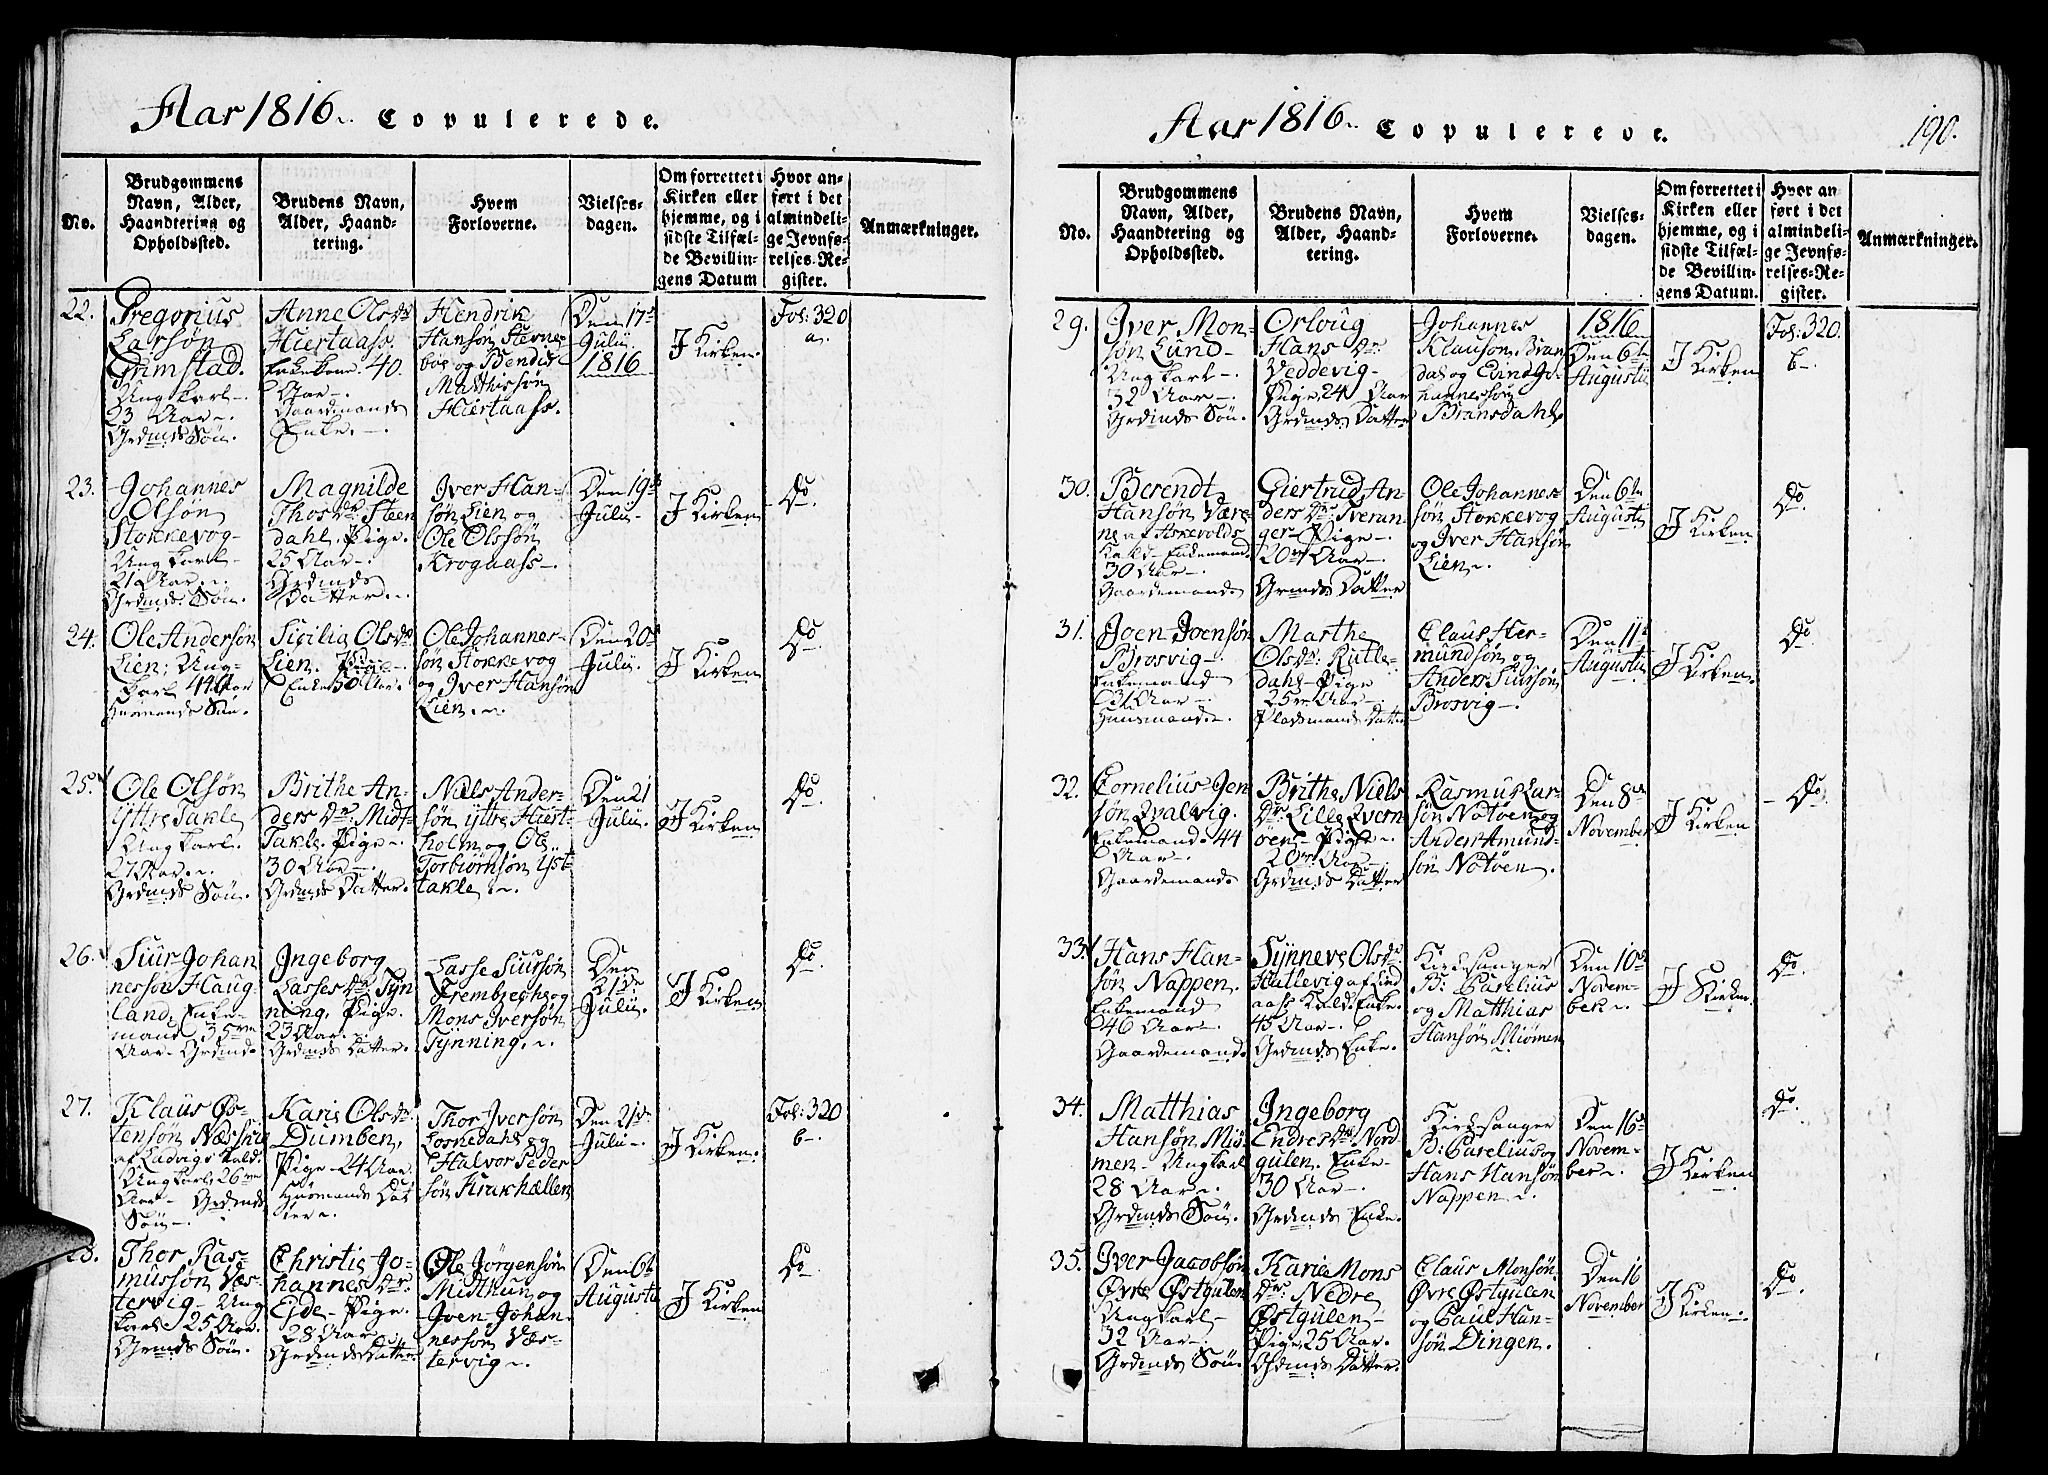 Aar 1816. Copulerede.
No.
Brudgommens
Navn, Alder,
Haandtering og
Opholdssted.
Brudens Navn,
Alder, Haand-
tering.
Hvem
Forloverne.
Vielses-
dagen.
Om forrettet i
Kirken eller
hjemme, og i
sidste Tilfæl-
de Bevillin-
gens Datum
Hvor an-
ført i det
almindeli-
ge Jevnfø-
relses-Re-
gister.
Anmærkninger.
22.
Gregorius
Larsøn
Grimstad.
Ungkarl-
23 Aar-.
Grdmds Søn.
Anne Olsdr
Hiertaass.
Enkekone. 40.
Aar-.
Gaardmands
Enke.-.
Hendrik
Hansøn Stevne-
boe og Bendix
Matthissøn
Hiertaass.
Den 17de
Julii
1816
J Kirken.
Fol: 320
a.
23.
Johannes
Olsøn
Stokkevog-
Ungkarl-
21 Aar-.
Grdmds Søn.
Magnilde
Thosdr Steen
dahl. Pige.
25 Aar-.
Grdmds
Datter.
Iver Han-
søn Lien og
Ole Olssøn
Krogaass-.
Den 19de
Julii-
J Kirken
Do
24.
Ole Andersøn
Lien; Ung-
karl 44 Aar
Huusmands Søn.
Sicilia Olsdr
Lien. Pige-
Enke 50 Aar.
Ole Johannes-
søn Stokkevog
og Iver Hansøn
Lien.
Den 20de
Julii.
J Kirken
Do
25.
Ole Olsøn
Yttre Takle
Ungkarl.
27 Aar.
Grdmds Søn.
Brithe An-
ders Dr: Midt-
Takle. Pige.
30 Aar-.
Grdmds Datter.
Niels Ander-
søn yttre Hiert-
holm og Ole
Torbiørnsøn Yst-
takle.
Den 21
Julii.
J Kirken
Do
26.
Siur Johan
nessøn Haug-
land, Enke-
mand 35
Aar. Grdmd.
Ingeborg
Lasses Dr: Tyn
ning, Pige.
23 Aar.
Grdmds Datter.
Lasse Siursøn
Frembrechs og
Mons Iversøn
Tynning.
Den
21de
Julii.
J Kirken
Do
27.
Klaus Øs-
tensøn Næsse
af Ladvigs Kald.
Ungkarl 26
Aar- Grdmds
Søn-.
Karis Olsdr
Dumben,
Pige 24 Aar
Huusmands Dat
ter.
Thor Iversøn
Løkkedahl og
Halvor Peder
søn Krakhællen
Den 21de
Julii-.
J Kirken.
Fol: 320
b-.
28.
Thor Ras-
mussøn Væs-
tervig- Ung
karl 25 Aar.
Grmds Søn.
Christie Jo-
hannes Dr:
Eide- Pige.
28 Aar
Grdmds Datter
Ole Jørgensøn
Midthun og
Iven Johan-
nessøn Væs-
tervig.
Den 6te
Augusti
J Kirken
Do
Aar 1816. Copulerede.
190.
No.
Brudgommens
Navn, Alder,
Haandtering og
Opholdssted.
Brudens Navn,
Alder, Haand-
tering.
Hvem
Forloverne.
Vielses-
dagen.
Om forrettet i
Kirken eller
hjemme, og i
sidste Tilfæl-
de Bevillin-
gens Datum.
Hvor an
ført i det
almindeli-
ge Jevnfø-
relses-Re-
gister.
Anmærkninger.
29.
Iver Mon-
søn Lund-
Ungkarl-.
32 Aar-.
Grdmds Søn.
Orloug
Hans Dr:
Veddevig-
Pige. 24 Aar
Grdmds Datter
Johannes
Klausøn Bran
dal og Evind Jo-
hannessøn
Bransdahl
1816
Den 6te
Augusti
J Kirken
Fol: 320.
b-
30.
Berendt
Hansøn Være-
ne af Askevolds
Kald- Enkemand
30 Aar-.
Gaardemand
Giertrud An-
ders Dr: Tveran-
ger- Pige-.
20 Aar-.
Grmds Datter
Ole Johannes-
søn Stokkevog
og Iver Hansøn
Lien-.
Den 6te
Augusti
J Kirken
Do
31.
Joen Joensøn
Brosvig-.
Enkemand
31 Aar-.
Huusmand-.
Marthe
Olsdr: Rutle-
dahl- Pige
25 Aar-
Pladsmands Datter
Claus Her-
mundsøn og
Anders Siursøn
Brosvig-.
Den 11te
Augusti
J Kirken.
Do
32.
Cornelius Jen
søn Qvalvig.
Enkemand 44
Aar-.
Gaardemand
Brithe Niels
Dr: Lille Qvern
øen- Pige-.
20 Aar-.
Grdmds Datter
Rasmus Lar-
søn Notøen og
Anders Amund-
søn Notøen.
Den 8de
November
J Kirken
Do
33.
Hans Han-
søn Nappen.
Enkemand
46 Aar-.
Gaardemand.
Synneve Olsdr:
Hattevig af Lind
aass Kald. Enke.
45 Aar-.
Grdmds Enke.
Kirkesanger
B: Carelius
og Matthias
Hansøn Miømen
Den 10de
Novem-
ber.
J Kirken
Do
34.
Matthias
Hansøn Miø-
men- Ungkarl
28 Aar.
Grdmds Søn.
Ingeborg
Endres Dr: Nord
gulen. Enke-
30 Aar-.
Grdmds Enke.
Kirkesanger
B: Carelius og
Hans Hansøn
Nappen-.
Den 16de
Novem-
ber.
J Kirken
Do
35.
Iver Jacobsøn
Øvre Østgulen
Ungkarl-
32 Aar-.
Grdmds Søn.
Karie Mons
Dr: Nedre
Østgulen-
Pige 25 Aar.
Grdmds Datter.
Claus Monsøn
Øvre Østgulen
og Paul Han-
søn Dingen.
Den 16
November
J Kirken-.
Do